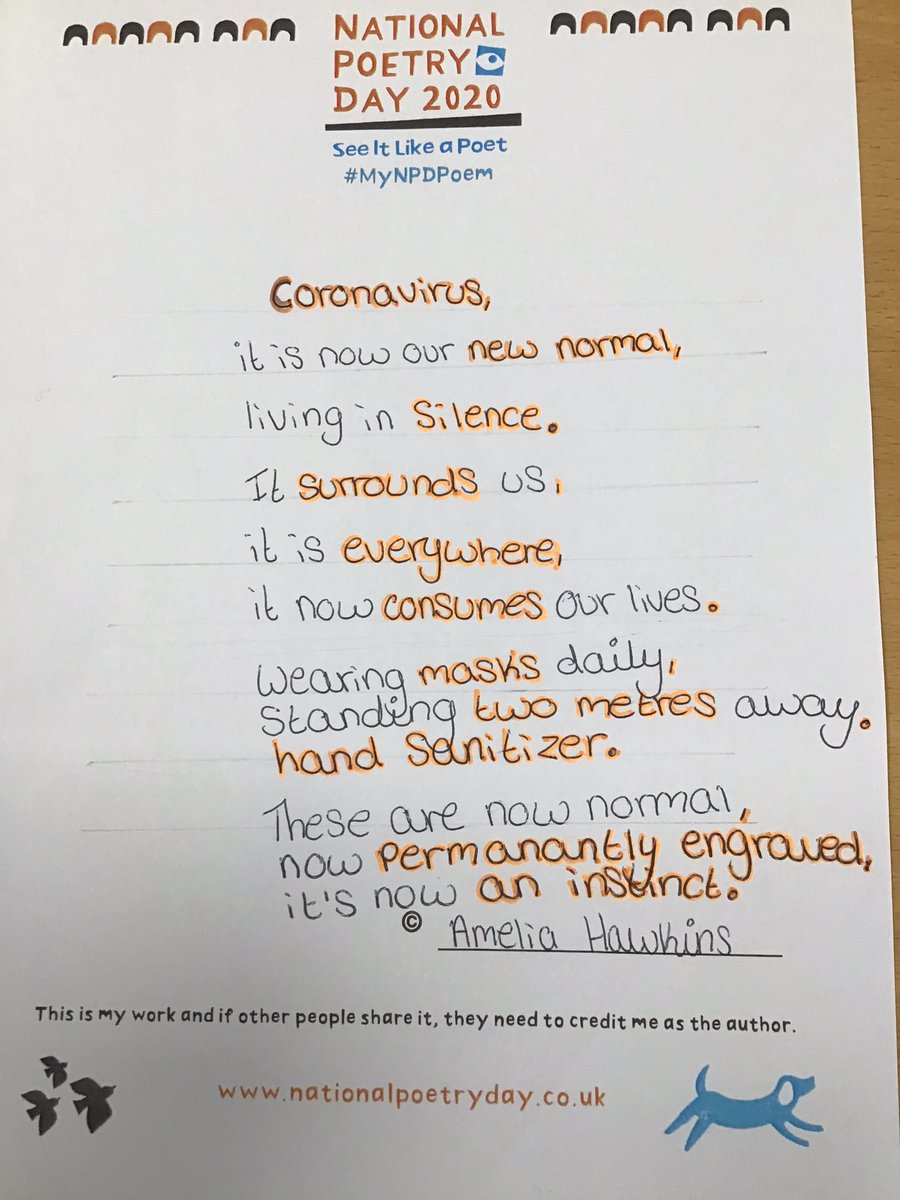 NATIONAL
POETRY
DAY 2020
See It Like a Poet
#MyNPDPoem
Coronavirus,
it is now our new normal,
living in Silence.
It surrounds us,
it is everywhere,
it now consumes our lives.
Wearing masks daily,
Standing two metres away.
hand Sanitizer.
These are now normal,
now permanantly engraved,
it's now an instinct.
© Amelia Hawkins
This is my work and if other people share it, they need to credit me as the author.
www.nationalpoetryday.co.uk